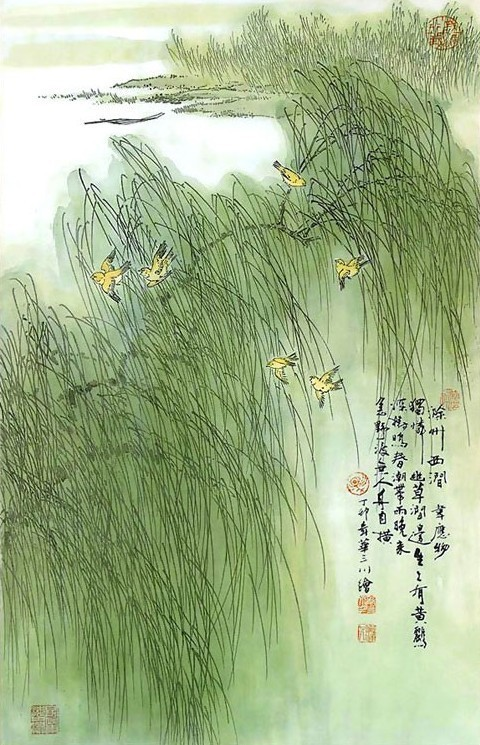 滁州西澗 韋應物
獨憐幽草澗邊生上有黃鸝
深樹鳴春潮帶雨晚來
急野渡無人舟自橫
丁卯春華三川繪